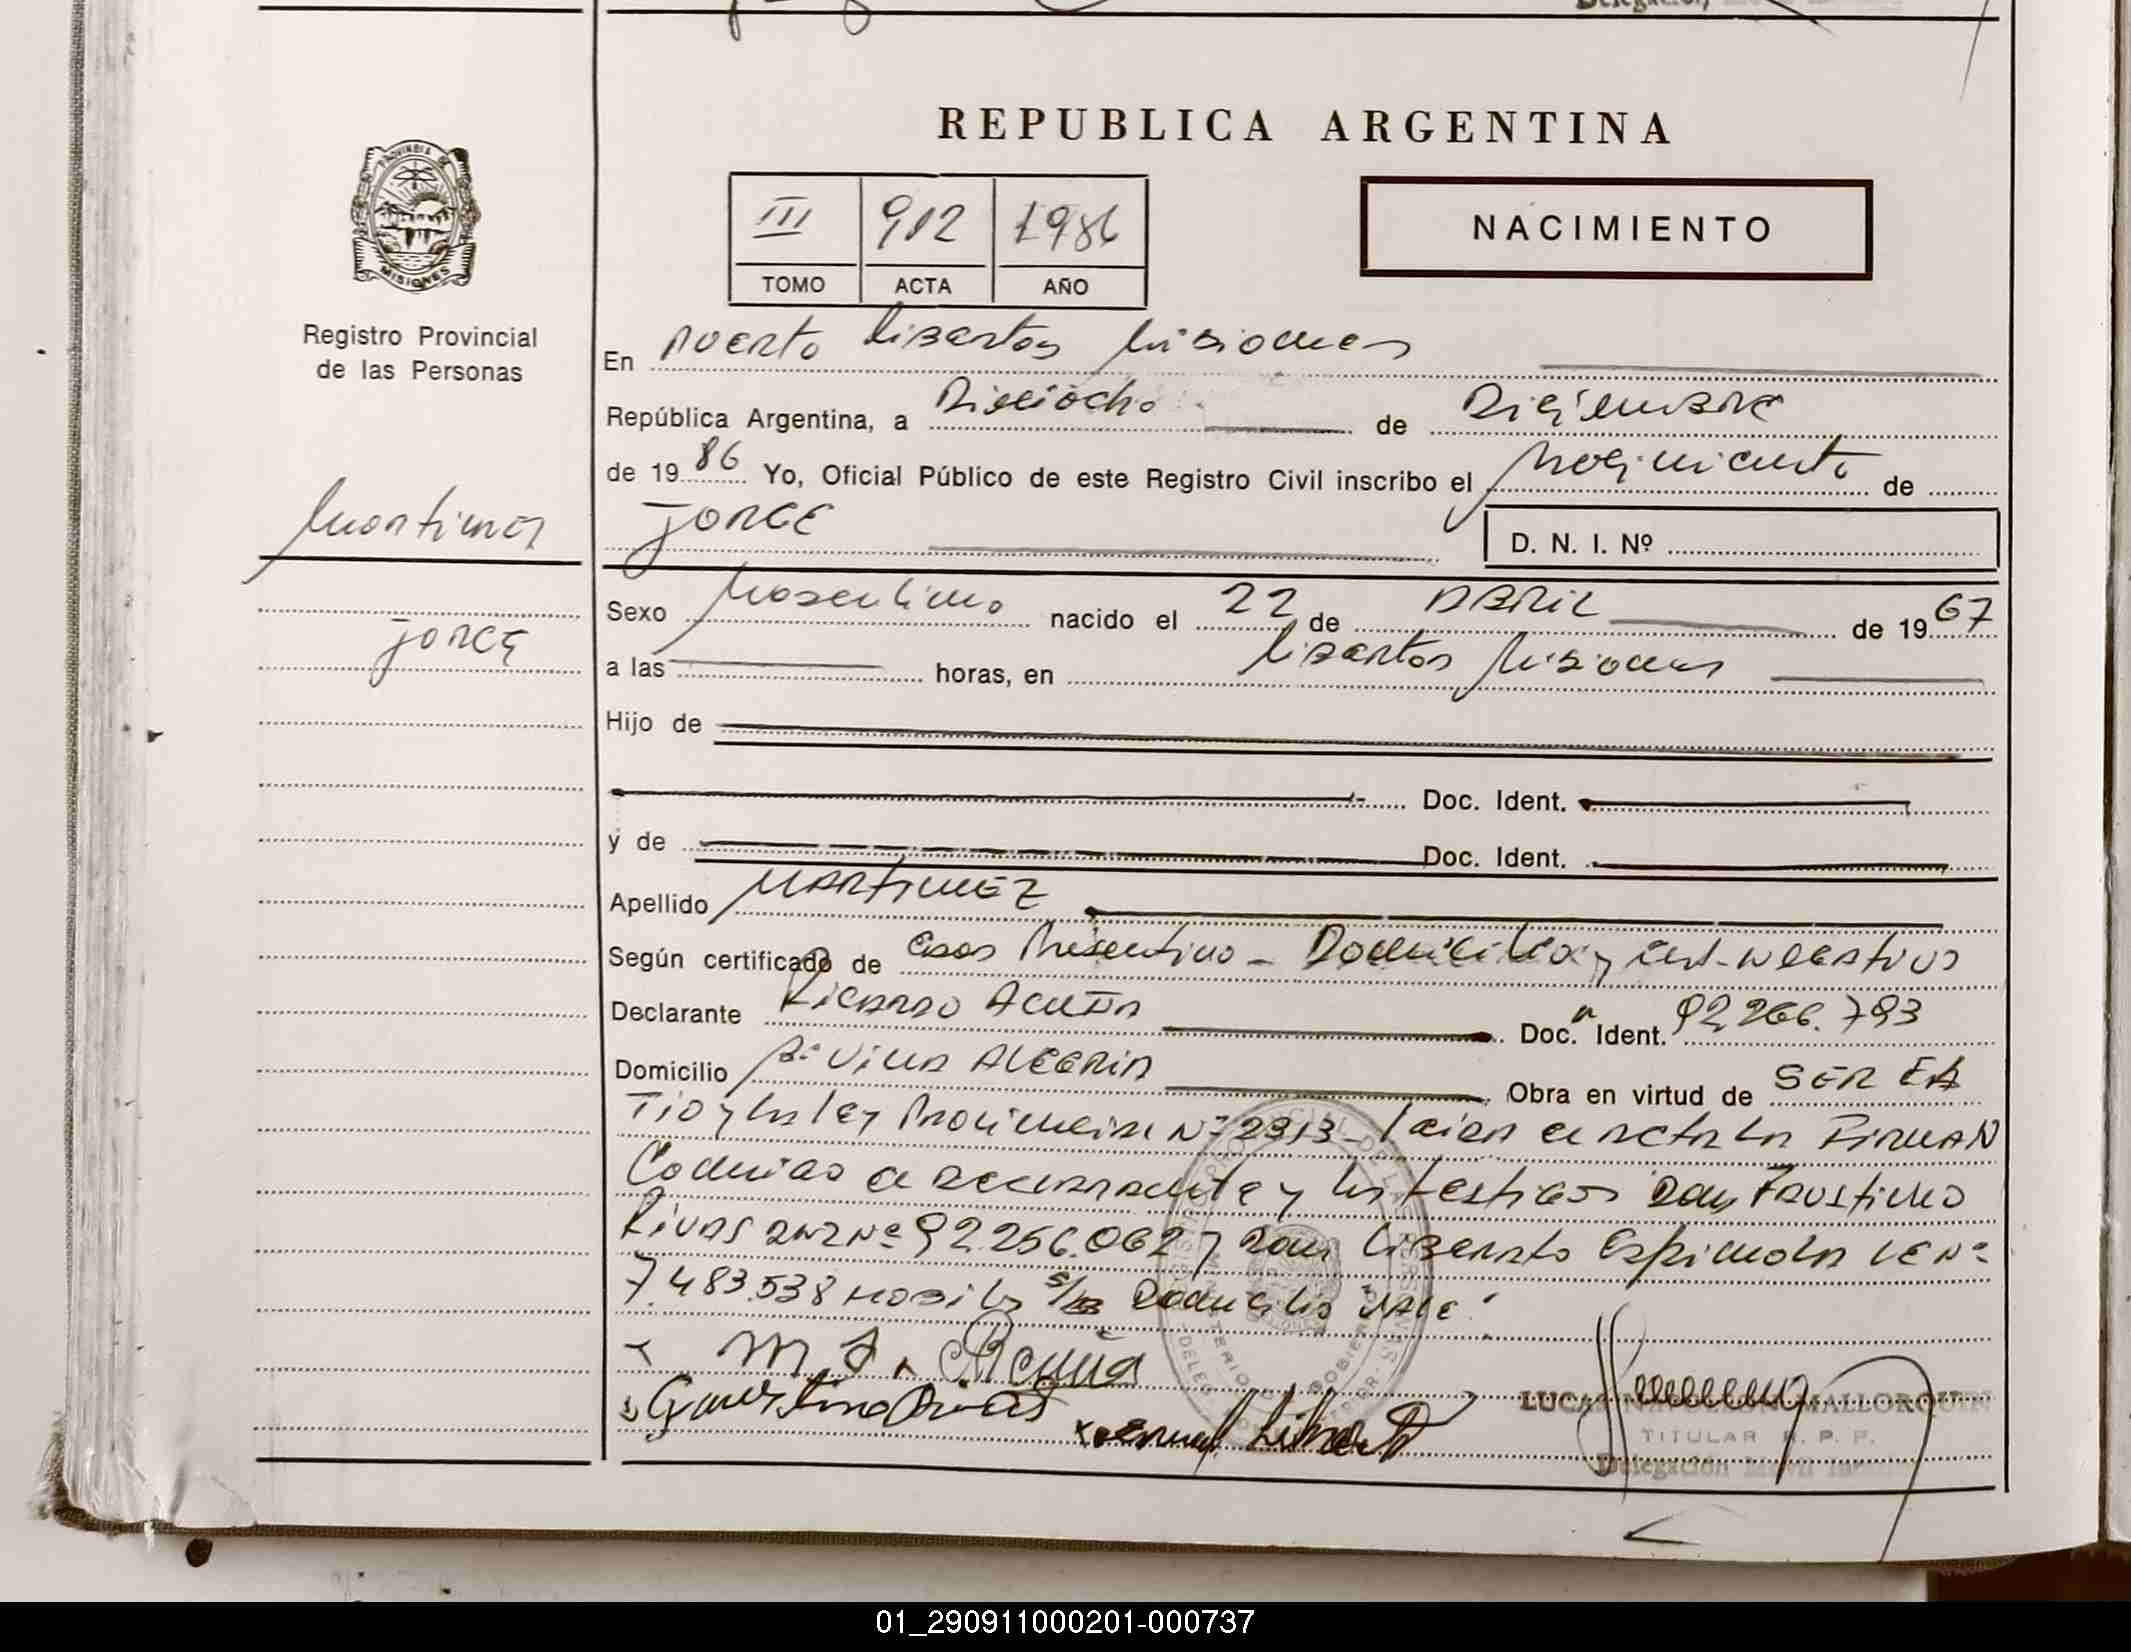 REPUBLICA ARGENTINA
PROVINCIA DE
MISIONES
Registro Provincial
de las Personas
III 912 1986
TOMO ACTA AÑO
NACIMIENTO
En Puerto Libertad Misiones
República Argentina, a Dieciocho de Diciembre
de 1986 Yo, Oficial Público de este Registro Civil inscribo el Nacimiento de
JORGE
D. N. I. Nº
Martinez
Jorge
Sexo Masculino nacido el 22 de ABRIL de 1967
a las horas, en Libertad Misiones
Hijo de
Doc. Ident.
y de Doc. Ident.
Apellido MARTINEZ
Según certificado de Domicilio y Cert. NEGATIVO
Declarante RICARDO ACUÑA Doc. Ident. 92.266.793
Domicilio Bº VILLA ALEGRIA Obra en virtud de SER EL
TIO y la ley Provincial Nº 2313 - leida el acta la FIRMAN
Conmigo el declarante y los testigos Don FAUSTINO
Rivas DNI Nº 92.256.062 y Don Liberato Espindola LE Nº
7.483.538 Domicilio VALE.
Acuña
Faustino Rivas
LUCAS NAPOLEON MALLORQUIN
TITULAR R. P. P.
Delegación Movil
01_290911000201-000737